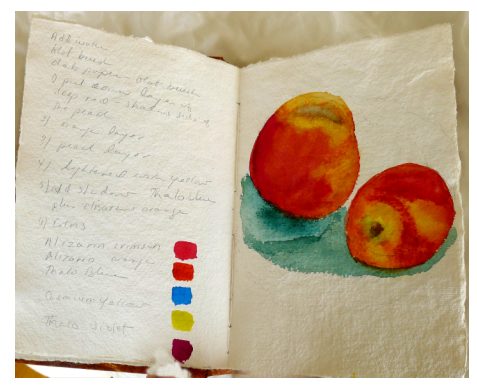 Add water
blot brush
blot brush
layer of
deep red - shadow side of
the peach
2) orange layer
3) peach layer
4) lightened with yellow
5) add shadow Thalo blue
plus alizarin orange
Colors
Alizarin crimson
Alizarin orange
Thalo Blue
Cadmium yellow
Thalo violet